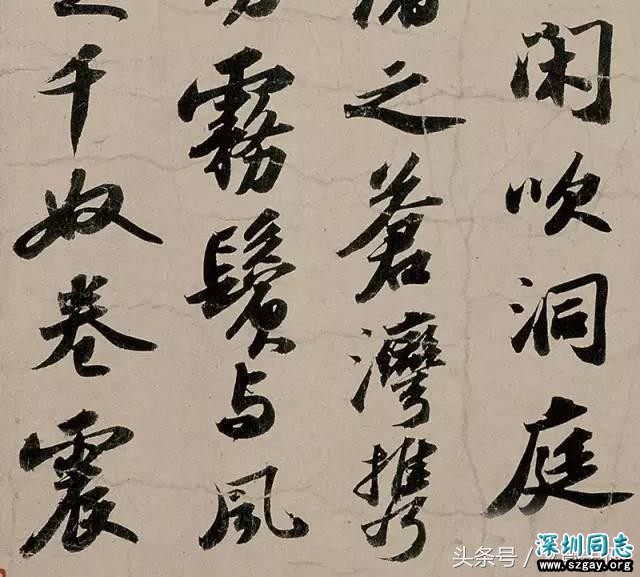 閑吹洞庭
之蒼灣携
霧鬢与風
千奴卷震
头条号/
深圳同志
www.szgay.org